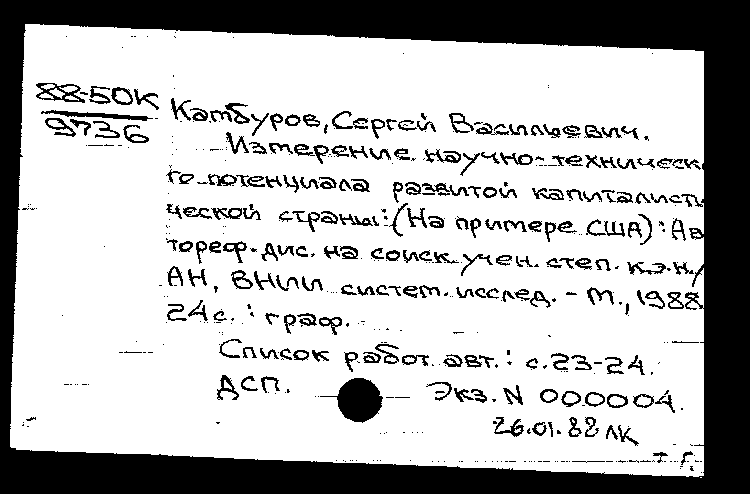 88-50К
9736
Камбуров, Сергей Васильевич.
Измерение научно-техническо
го потенциала развитой капиталисти
ческой страны: (На примере США): Ав
тореф. дис. на соиск учен. степ. к.э.н/
АН, ВНИИ систем. исслед. - М., 1988
24 с. : граф.
Список работ авт.: с.23-24.
ДСП. Экз. N 000004.
26.01.88 ЛК
Т Г.